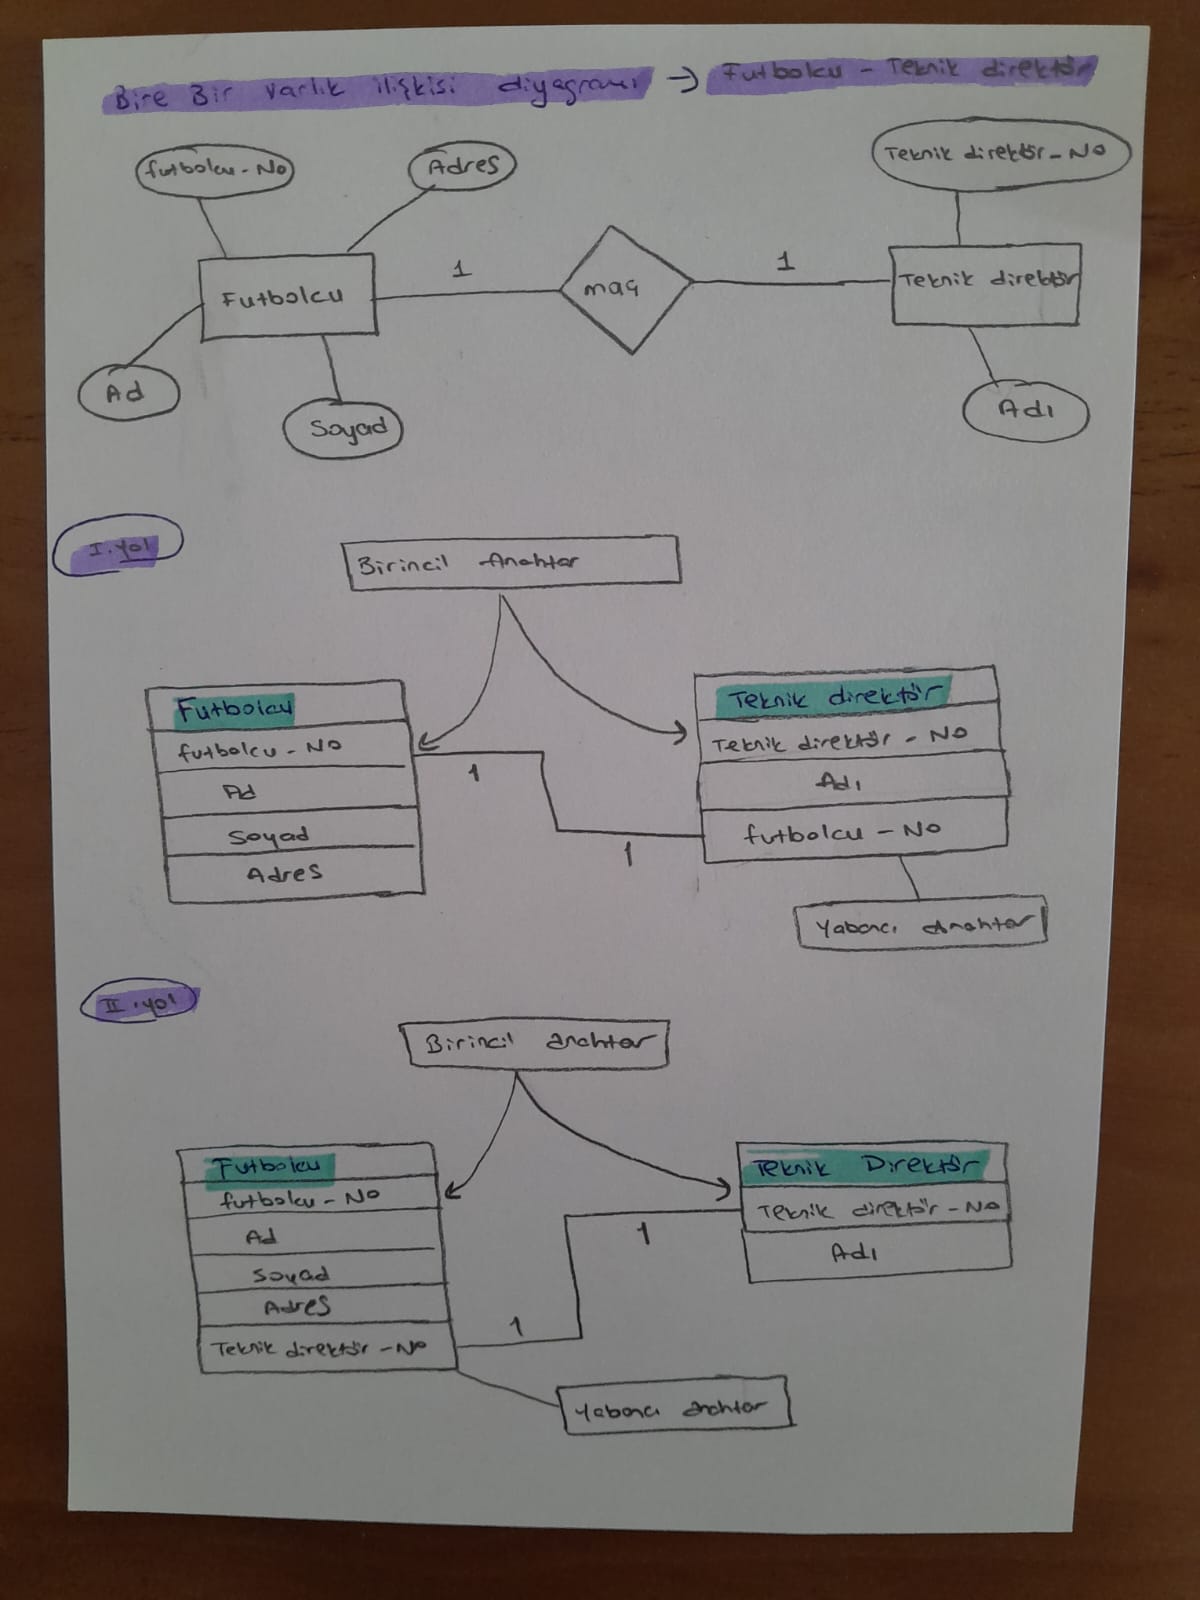 Bire Bir varlık ilişkisi diyagramı → Futbolcu - Teknik direktör
futbolcu - No
Adres
Teknik direktör - No
Futbolcu
1
maç
1
Teknik direktör
Ad
Soyad
Adı
I. yol
Birincil Anahtar
Futbolcu
futbolcu - No
Ad
Soyad
Adres
1
1
Teknik direktör
Teknik direktör - No
Adı
futbolcu - No
Yabancı Anahtar
II. yol
Birincil anahtar
Futbolcu
futbolcu - No
Ad
Soyad
Adres
Teknik direktör - No
1
1
Teknik Direktör
Teknik direktör - No
Adı
Yabancı anahtar